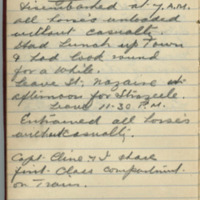 Disembarked at 7 A.M.
all horses unloaded
without casualty.
Had Lunch up Town
& had look round
for a while.
Leave St. Nazaire in
afternoon for Strazeele.
Leave 11-30 P.M.
Entrained all horses
without casualty.
Capt. Cline & I share
first Class compartment
on Train.